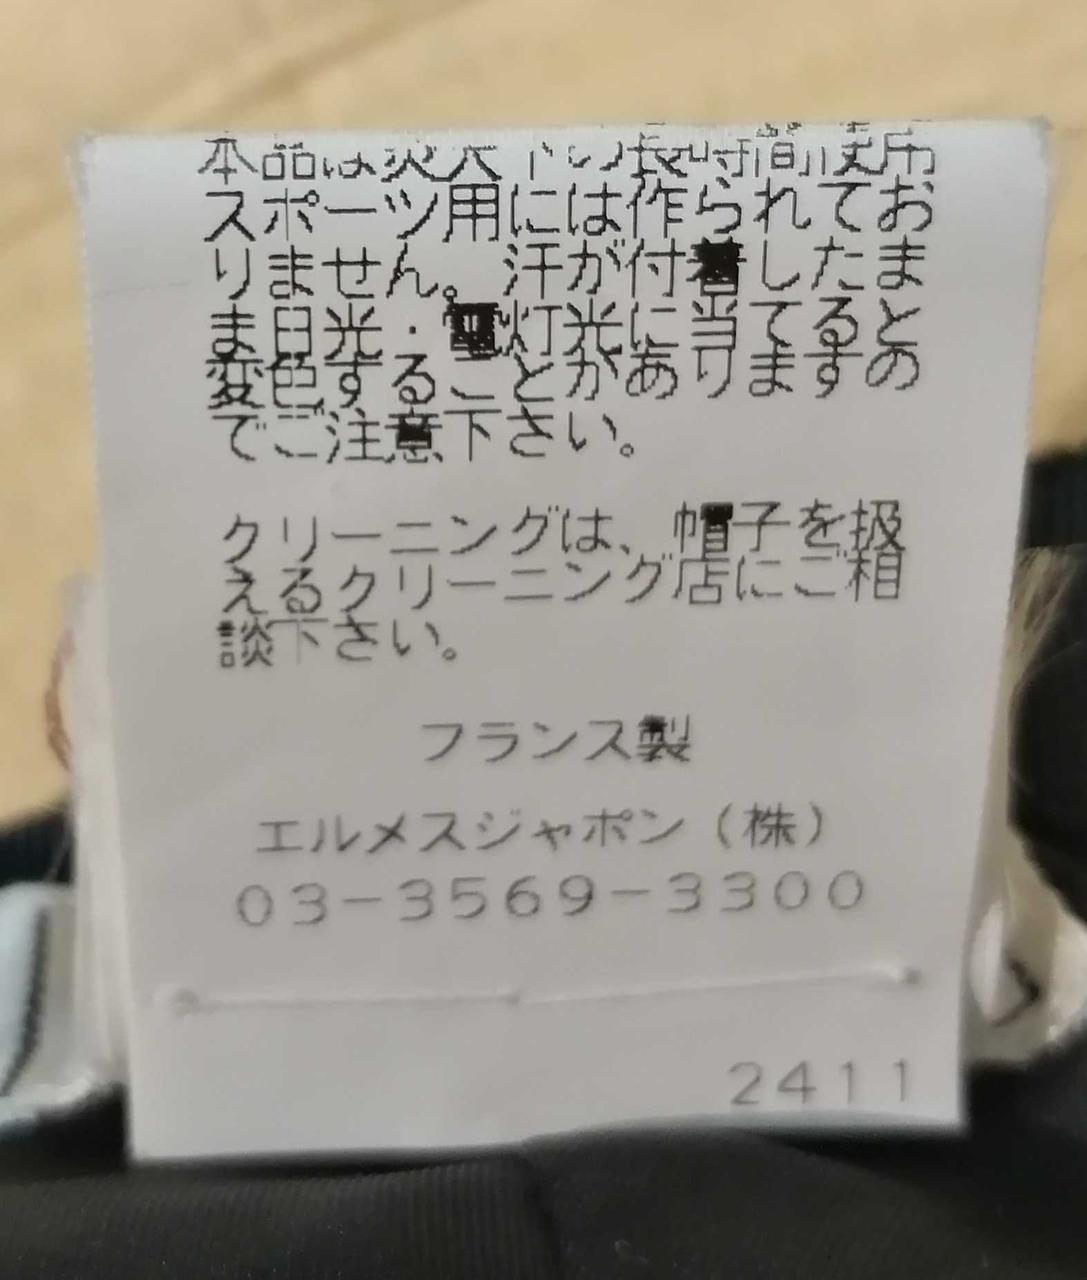 本品は炎天下の長時間使用
スポーツ用には作られてお
りません。汗が付着したま
ま日光・電灯光に当てると
変色することがありますの
でご注意下さい。
クリーニングは、帽子を扱
えるクリーニング店にご相
談下さい。
フランス製
エルメスジャポン（株）
03-3569-3300
2411